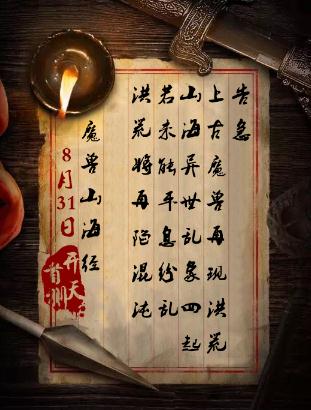 告急
上古魔兽再现洪荒
山海异世乱象四起
若未能平息纷乱
洪荒将再陷混沌
魔兽山海经
8月31日
开天
首测